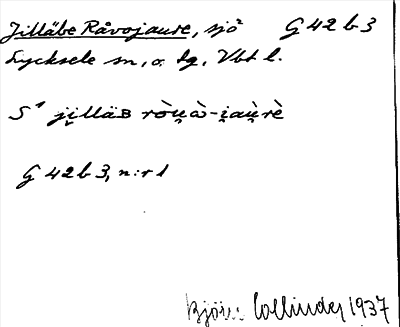 Jilläbe Råvojaure, sjö² G 42 b 3
Lycksele sn, o. tg, Vbt l.
S¹ ji̯lläʙ ròu̯à-i̯au̯rè
G 42 b 3, n:r 1
Björn Collinder 1937